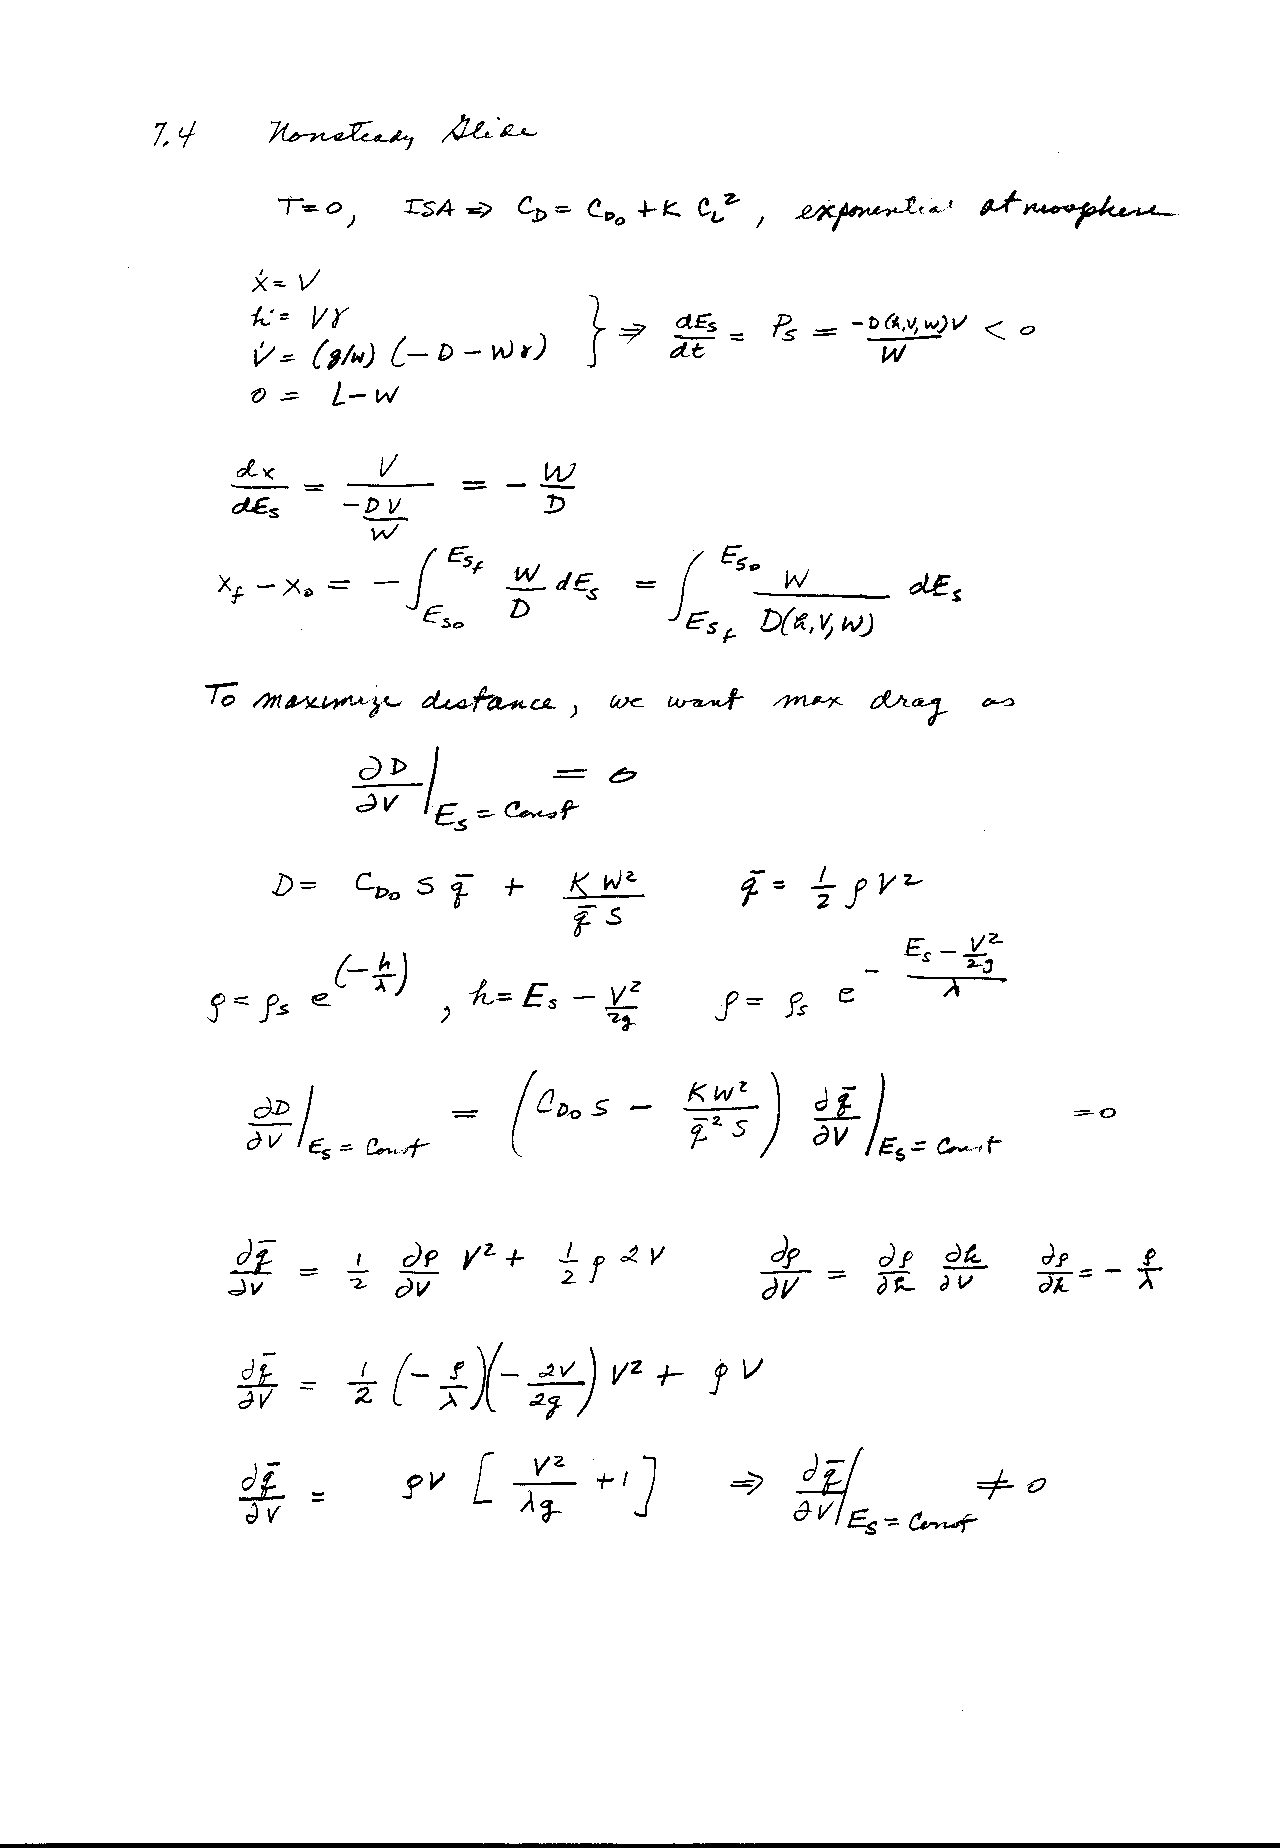 7.4 Nonsteady Glide
T=0, ISA ⇒ C_D = C_D0 + K C_L², exponential atmosphere
ẋ = V
ḣ = Vγ
V̇ = (g/W)(-D-Wγ) } ⇒ dEs/dt = Ps = -D(h,V,W)V/W < 0
0 = L-W
dx/dEs = V/(-DV/W) = -W/D
x_f - x_0 = -∫_{Es0}^{Esf} W/D dEs = ∫_{Esf}^{Es0} W/D(h,V,W) dEs
To maximize distance, we want max drag as
∂D/∂V |_{Es = Const} = 0
D = C_D0 S q̄ + KW²/(q̄ S) q̄ = 1/2 ρV²
ρ = ρs e^(-h/λ), h = Es - V²/2g ρ = ρs e^-((Es - V²/2g)/λ)
∂D/∂V |_{Es = Const} = (C_D0 S - KW²/(q̄² S)) ∂q̄/∂V |_{Es = Const} = 0
∂q̄/∂V = 1/2 ∂ρ/∂V V² + 1/2 ρ 2V ∂ρ/∂V = ∂ρ/∂h ∂h/∂V ∂ρ/∂h = -ρ/λ
∂q̄/∂V = 1/2 (-ρ/λ)(-2V/2g) V² + ρV
∂q̄/∂V = ρV [V²/λg + 1] ⇒ ∂q̄/∂V |_{Es = Const} ≠ 0